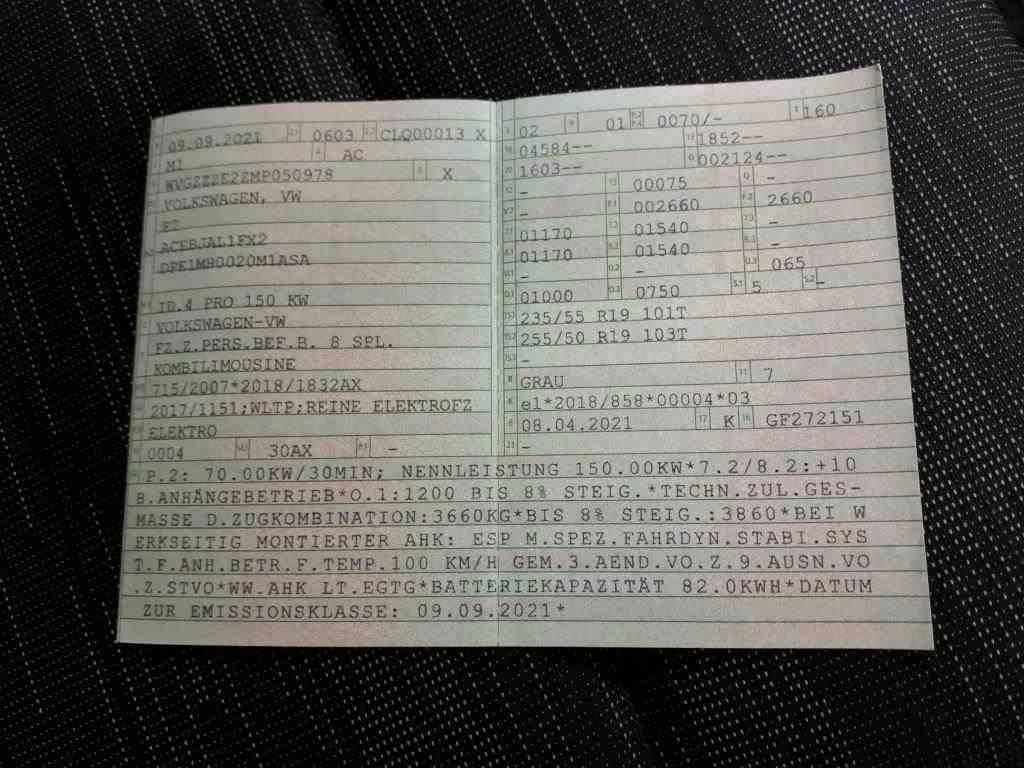 09.09.2021 0603 CLQ00013 X
M1 AC
WVGZZZE2ZMP050978 X
VOLKSWAGEN, VW
E2
ACEBJAL1FX2
DPE1MB0020M1ASA
ID.4 PRO 150 KW
VOLKSWAGEN-VW
FZ.Z.PERS.BEF.B. 8 SPL.
KOMBILIMOUSINE
715/2007*2018/1832AX
2017/1151;WLTP;REINE ELEKTROFZ
ELEKTRO
0004 30AX -
02 01 0070/- 160
04584-- 1852--
1603-- 002124--
- 00075 -
- 002660 2660
01170 01540 -
01170 01540 -
- - 065
01000 0750 5 -
235/55 R19 101T
255/50 R19 103T
-
GRAU 7
e1*2018/858*00004*03
08.04.2021 K GF272151
-
P.2: 70.00KW/30MIN; NENNLEISTUNG 150.00KW*7.2/8.2:+10
B.ANHÄNGEBETRIEB*O.1:1200 BIS 8% STEIG.*TECHN.ZUL.GES-
MASSE D.ZUGKOMBINATION:3660KG*BIS 8% STEIG.:3860*BEI W
ERKSEITIG MONTIERTER AHK: ESP M.SPEZ.FAHRDYN.STABI.SYS
T.F.ANH.BETR.F.TEMP.100 KM/H GEM.3.AEND.VO.Z.9.AUSN.VO
.Z.STVO*WW.AHK LT.EGTG*BATTERIEKAPAZITÄT 82.0KWH*DATUM
ZUR EMISSIONSKLASSE: 09.09.2021*